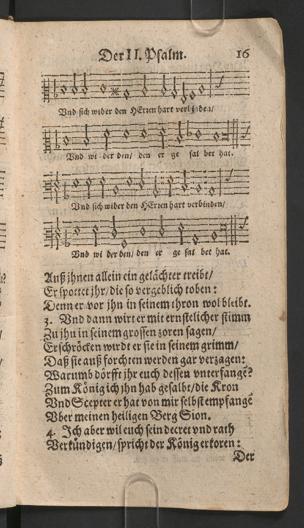 Der II. Psalm. 16
Vnd sich wider den HErren hart verbinden/
Vnd wi der den/ den er ge sal bet hat.
Vnd sich wider den HErren hart verbinden/
Vnd wi der den/ den er ge sal bet hat.
Auß jhnen allein ein gelächter treibt/
Er spottet jhr/ die so vergeblich toben:
Denn er vor jhn in seinem thron wol bleibt.
3. Vnd dann wirt er mit ernstlicher stimm
Zu jhn in seinem grossen zoren sagen/
Erschröcken wirdt er sie in seinem grimm/
Daß sie auß forchten werden gar verzagen:
Warumb dörfft jhr euch dessen vnterfangē?
Zum König ich jhn hab gesalbt/ die Kron
Vnd Scepter er hat von mir selbst empfangē
Vber meinen heiligen Berg Sion.
4. Ich aber wil euch sein decret vnd rath
Verkündigen/ spricht der König erkoren:
Der